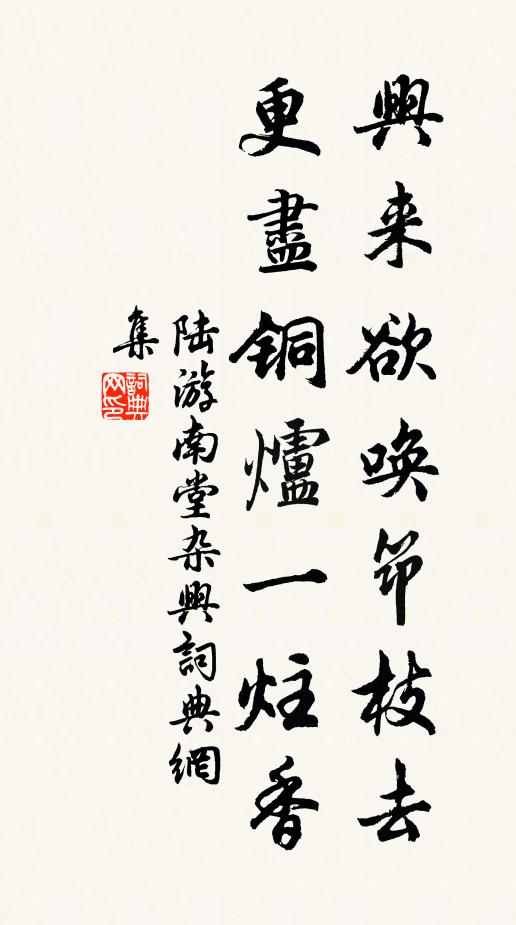 興来欲唤笻枝去
更盡铜爐一炷香
陆游南堂杂興詞典網
集
詞典
网印